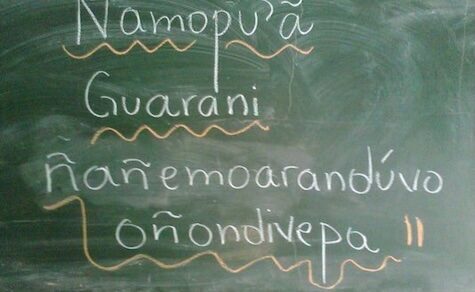 Ñamopu'ã
Guarani
ñañemoarandúvo
oñondivepa "